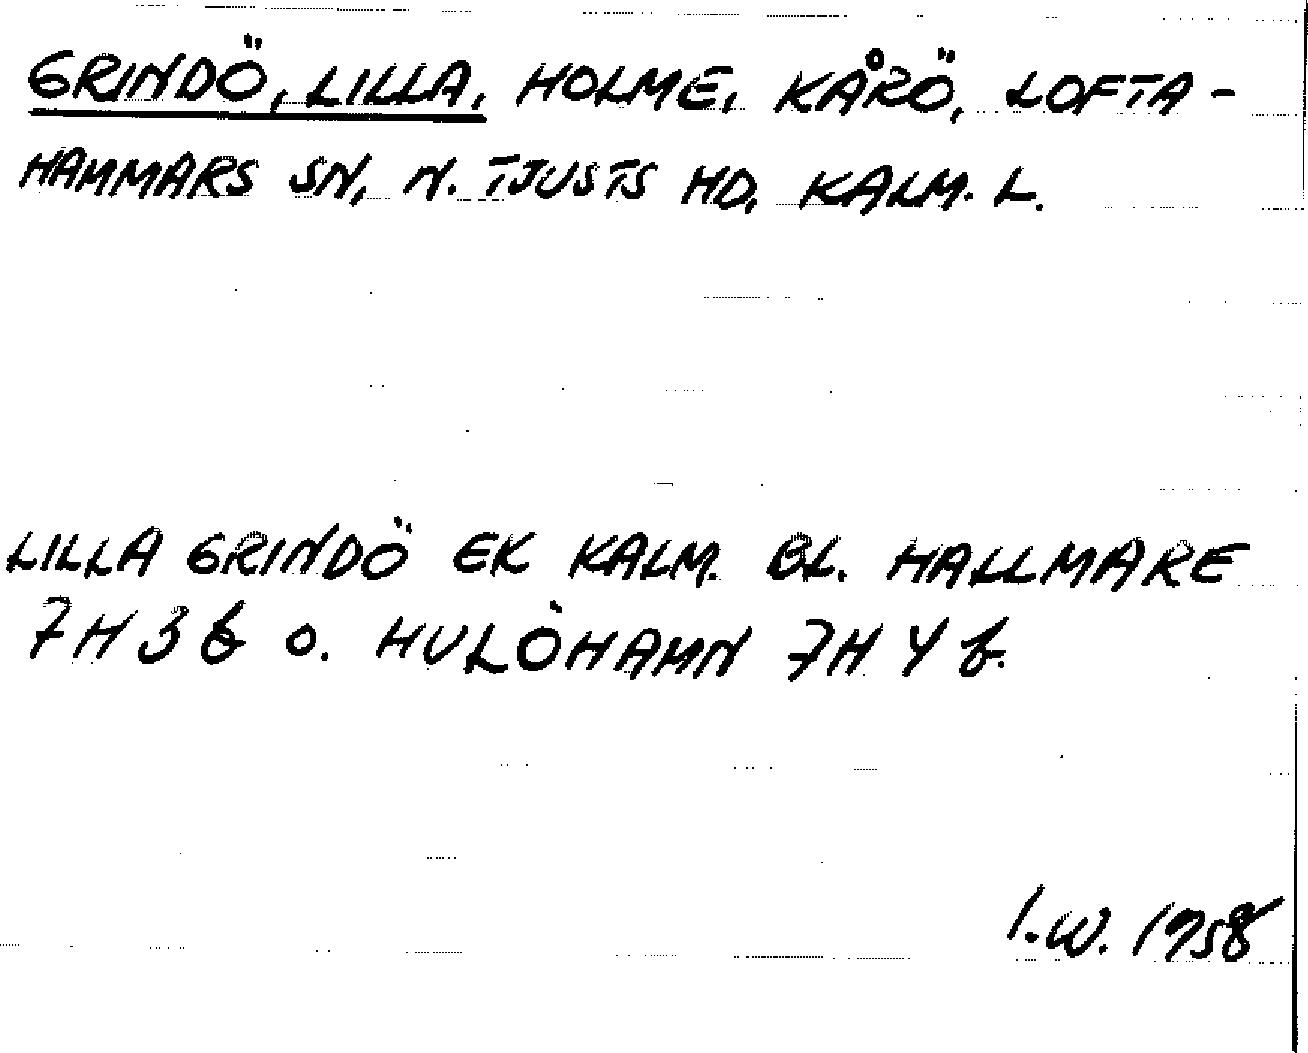 GRINDÖ, LILLA, HOLME, KÅRÖ, LOFTA-
HAMMARS SN, N. TJUSTS HD, KALM. L.
LILLA GRINDÖ EK KALM. BL. HALLMARE
7H 3 b o. HULÖHAMN 7H 4 b.
I.W. 1958